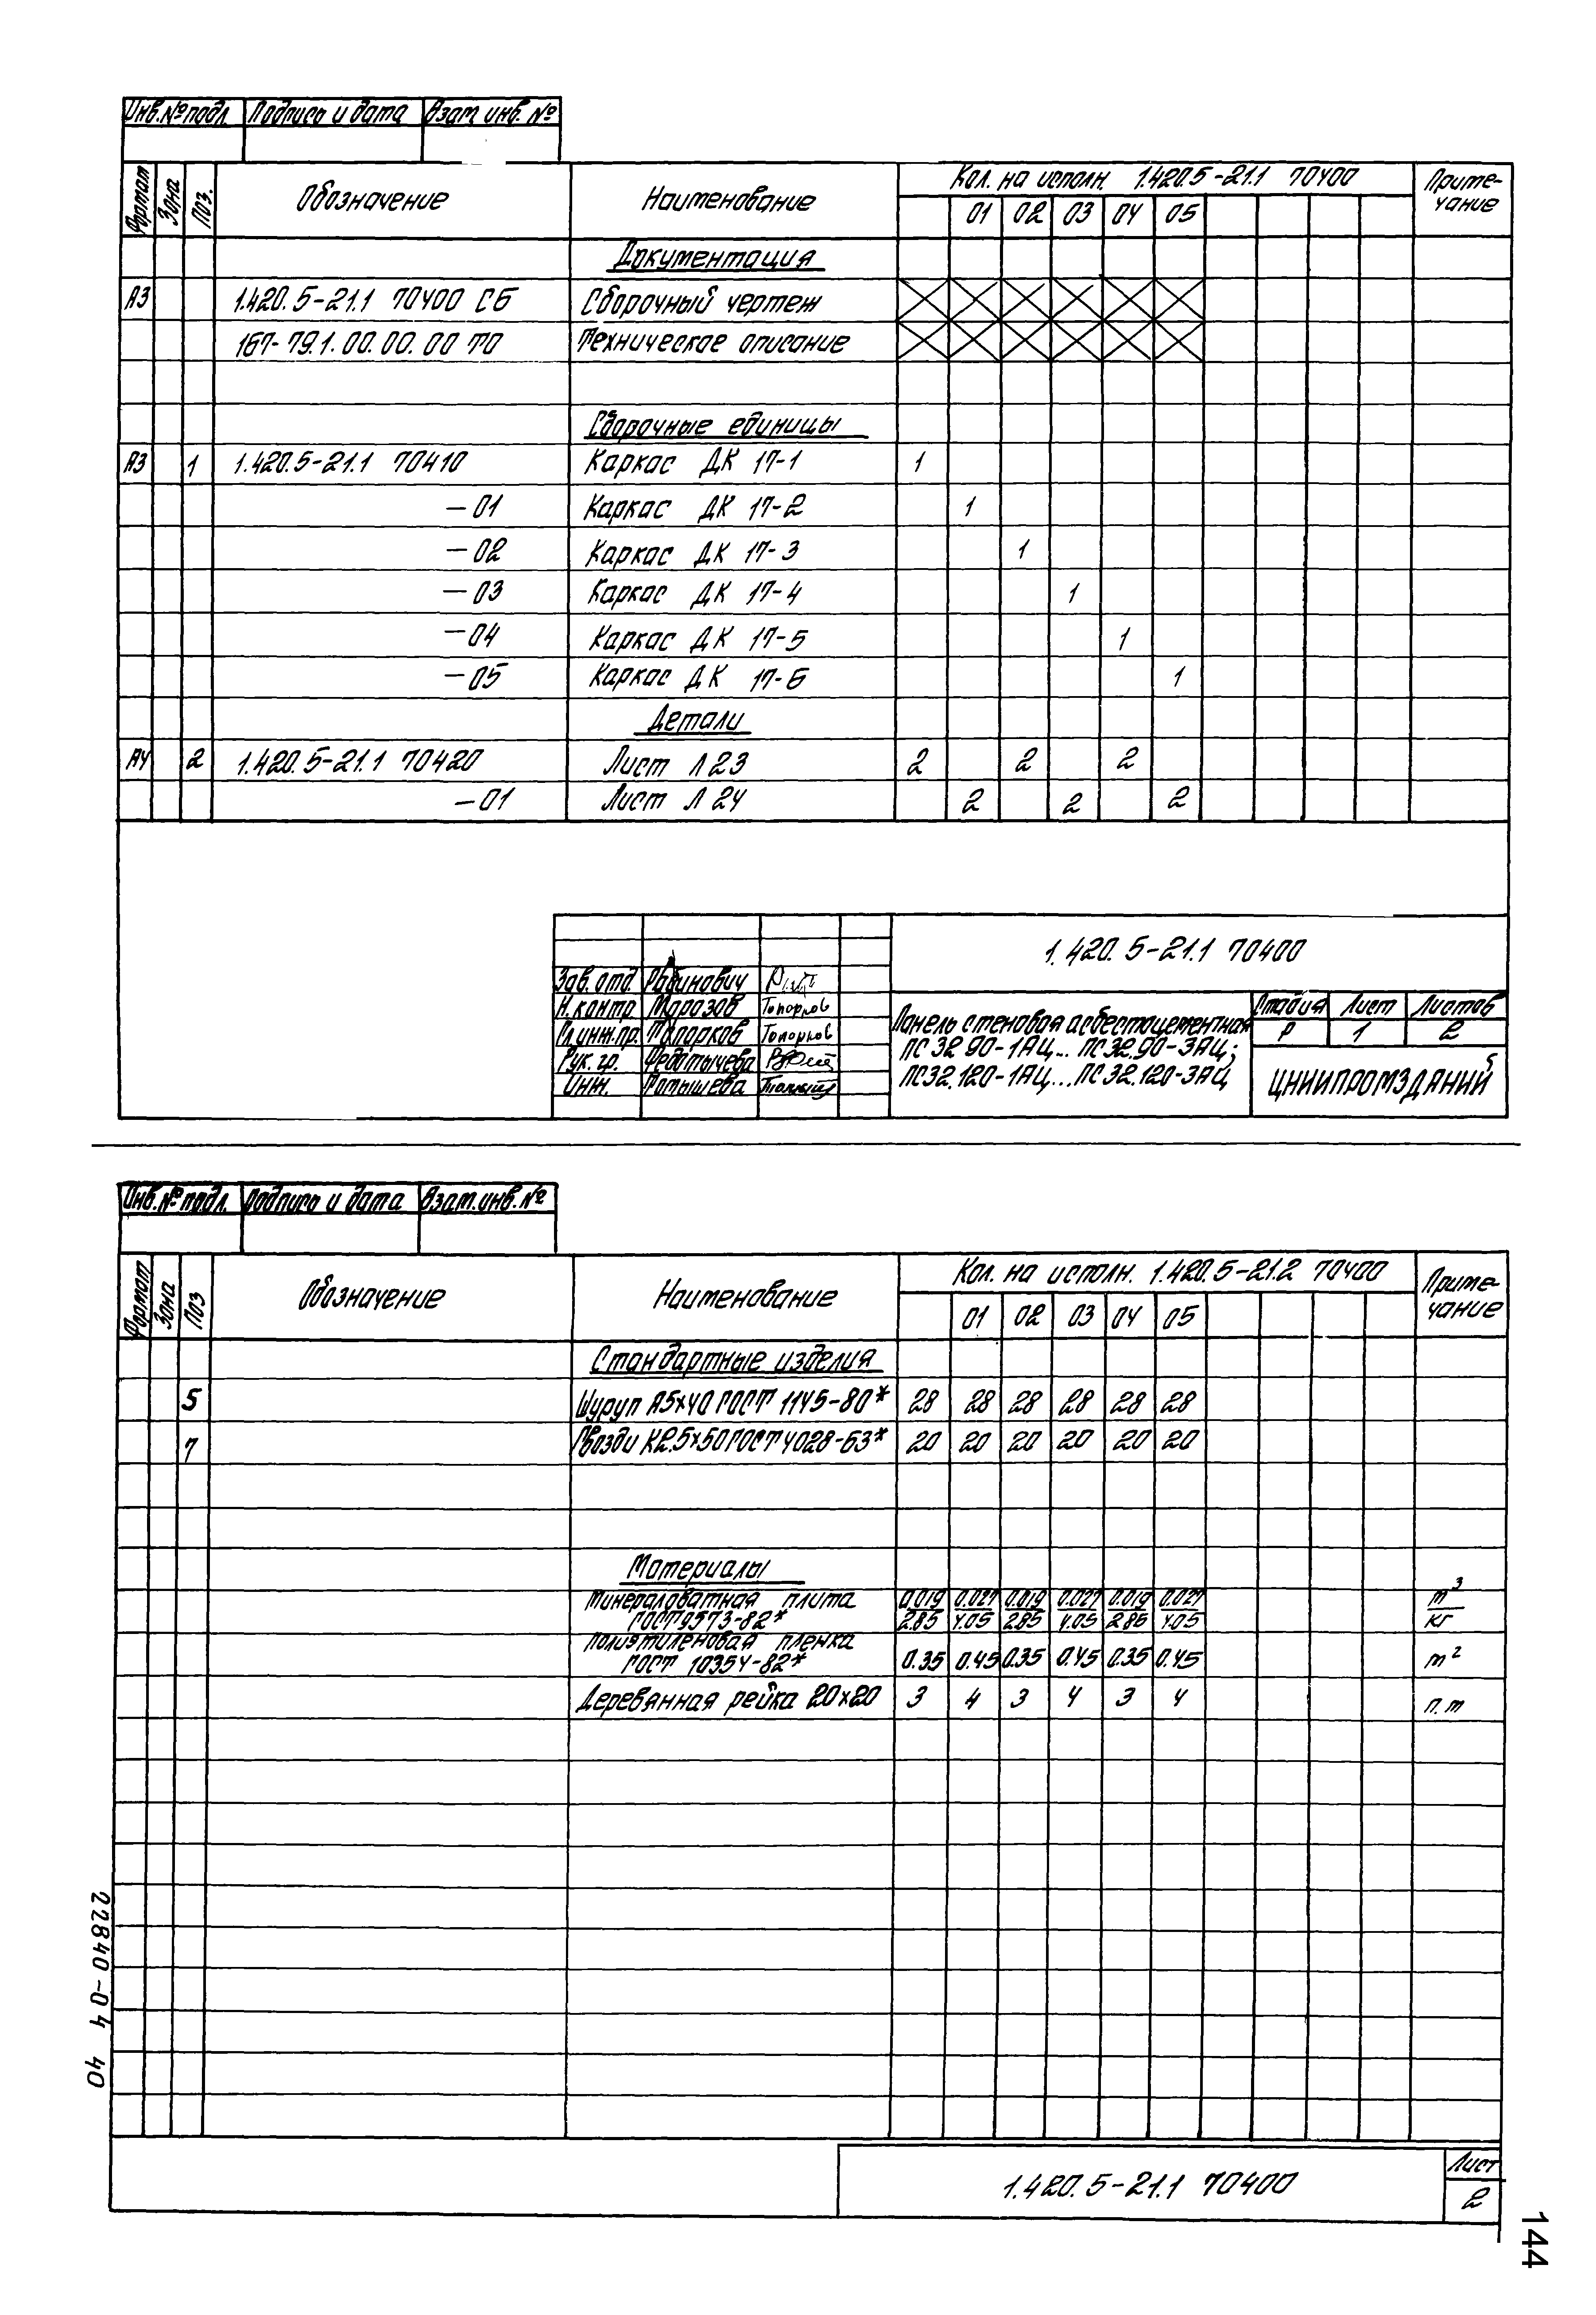 Инв.№подл. Подпись и дата Взам инв. №
Формат Зона Поз. Обозначение Наименование Кол. на исполн. 1.420.5-21.1 70400 Приме-
чание
01 02 03 04 05
Документация
А3 1.420.5-21.1 70400 СБ Сборочный чертеж
167-79.1.00.00.00 ТО Техническое описание
Сборочные единицы
А3 1 1.420.5-21.1 70410 Каркас ДК 17-1 1
-01 Каркас ДК 17-2 1
-02 Каркас ДК 17-3 1
-03 Каркас ДК 17-4 1
-04 Каркас ДК 17-5 1
-05 Каркас ДК 17-6 1
Детали
А4 2 1.420.5-21.1 70420 Лист Л23 2 2 2
-01 Лист Л24 2 2 2
1.420.5-21.1 70400
Зав. отд Рабинович
Н.контр Морозов Топорков
Гл.инж.пр. Топорков Топорков
Рук. гр. Федотычева
Инж.
Панель стеновая асбестоцементная
ПС32.90-1АЦ... ПС32.90-3АЦ;
ПС32.120-1АЦ...ПС32.120-3АЦ
Стадия Лист Листов
Р 1 2
ЦНИИПРОМЗДАНИЙ
Инв.№подл. Подпись и дата Взам.инв.№
Формат Зона Поз Обозначение Наименование Кол. на исполн. 1.420.5-21.2 70400 Приме-
чание
01 02 03 04 05
Стандартные изделия
5 Шуруп А5х40 ГОСТ 1145-80* 28 28 28 28 28 28
7 Гвозди К2.5х50 ГОСТ 4028-63* 20 20 20 20 20 20
Материалы
Минераловатная плита 0.019 0.027 0.019 0.027 0.019 0.027 m³
ГОСТ9573-82* 2.85 4.05 2.85 4.05 2.85 4.05 кг
Полиэтиленовая пленка
ГОСТ 10354-82* 0.35 0.45 0.35 0.45 0.35 0.45 m²
Деревянная рейка 20х20 3 4 3 4 3 4 п.m
22840-04 40
1.420.5-21.1 70400 Лист
2
144